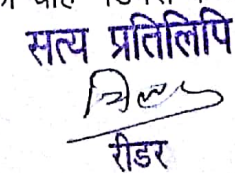 सत्य प्रतिलिपि
रीडर